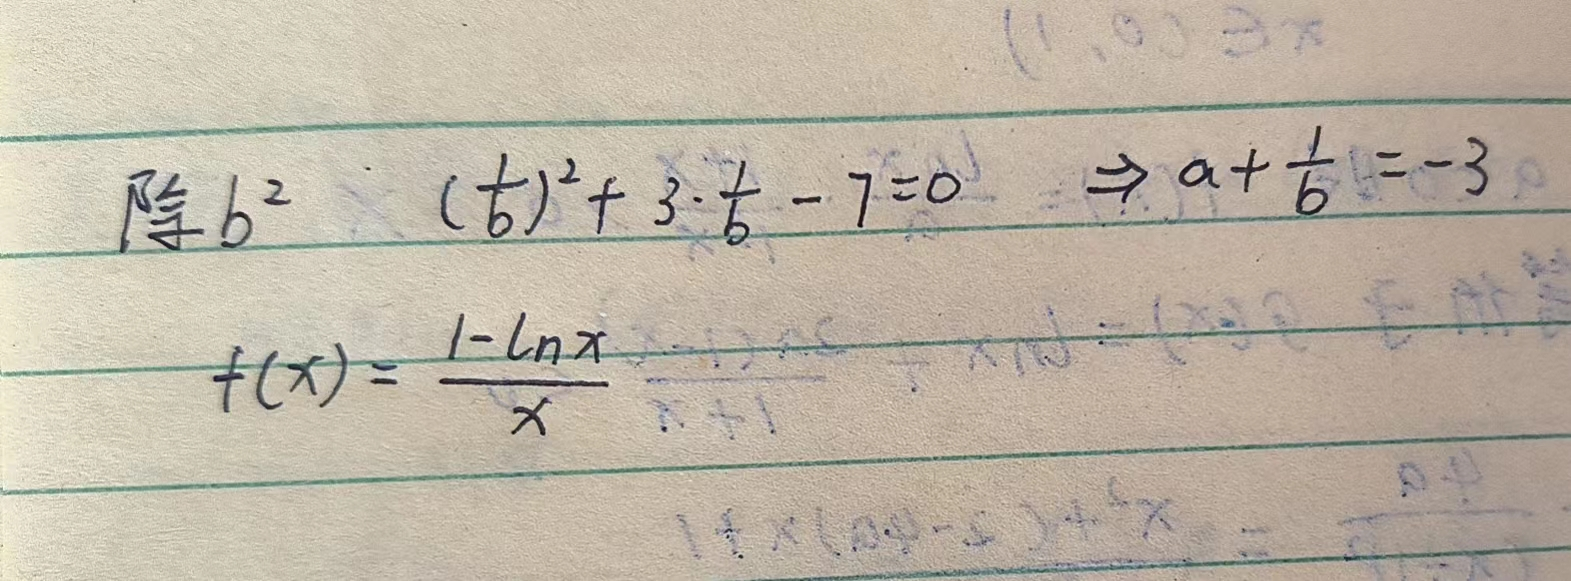 除b² (1/b)²+3·1/b-7=0 ⇒ a+1/b=-3
f(x)=(1-lnx)/x